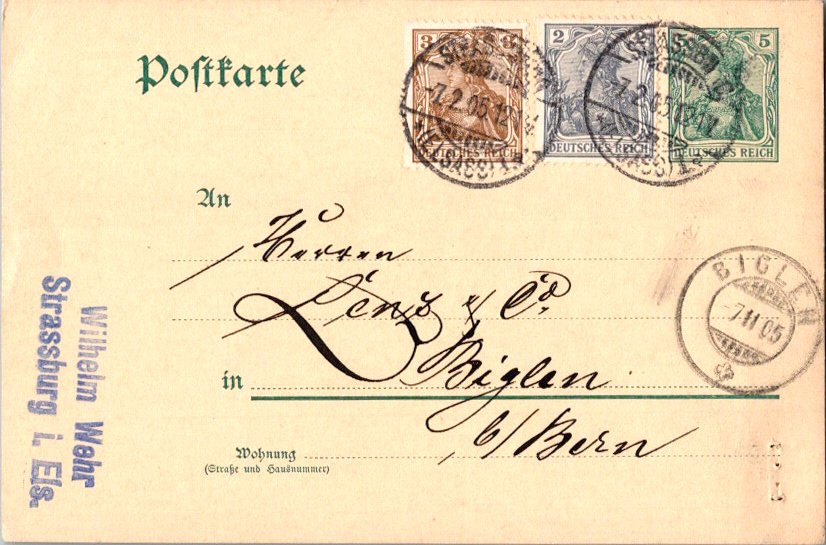 Postkarte
3 3
DEUTSCHES REICH
2
DEUTSCHES REICH
5 5
DEUTSCHES REICH
STRASSBURG
-7.2.05.12-1N.
(ELSASS)
STRASSBURG
-7.2.05.12-1N.
(ELSASS)
An
Herren
Lenz & Co.
in Biglen
b/Bern
Wohnung
(Straße und Hausnummer)
BIGLEN
-7.II.05
Wilhelm Wehr
Strassburg i. Els.